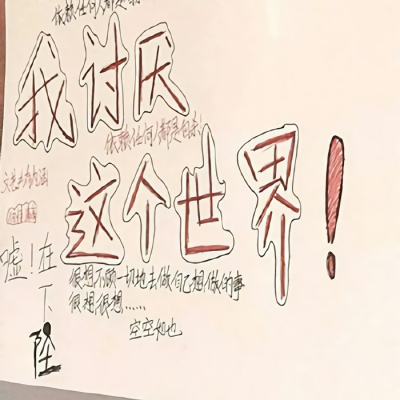 依赖任何人都是
我讨厌
依赖任何人都是自杀！
这个世界！
嘘！
在下坠
很想不顾一切地去做自己想做的事
很想很想……
空空如也